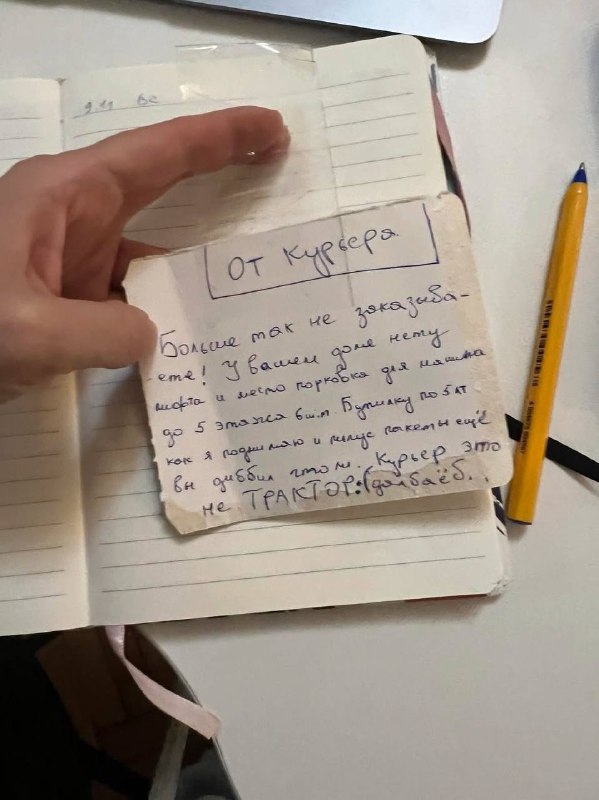 9.11 вс
ОТ Курьера
Больше так не заказыва-
-ете! У вашем доме нету
лифта и место порковка для машина
до 5 этажа 6 шт. Бутилку по 5 лт
как я поднимаю и плюс пакеты ещё
вы диббил штоли. Курьер это
не ТРАКТОР:(долбаёб.